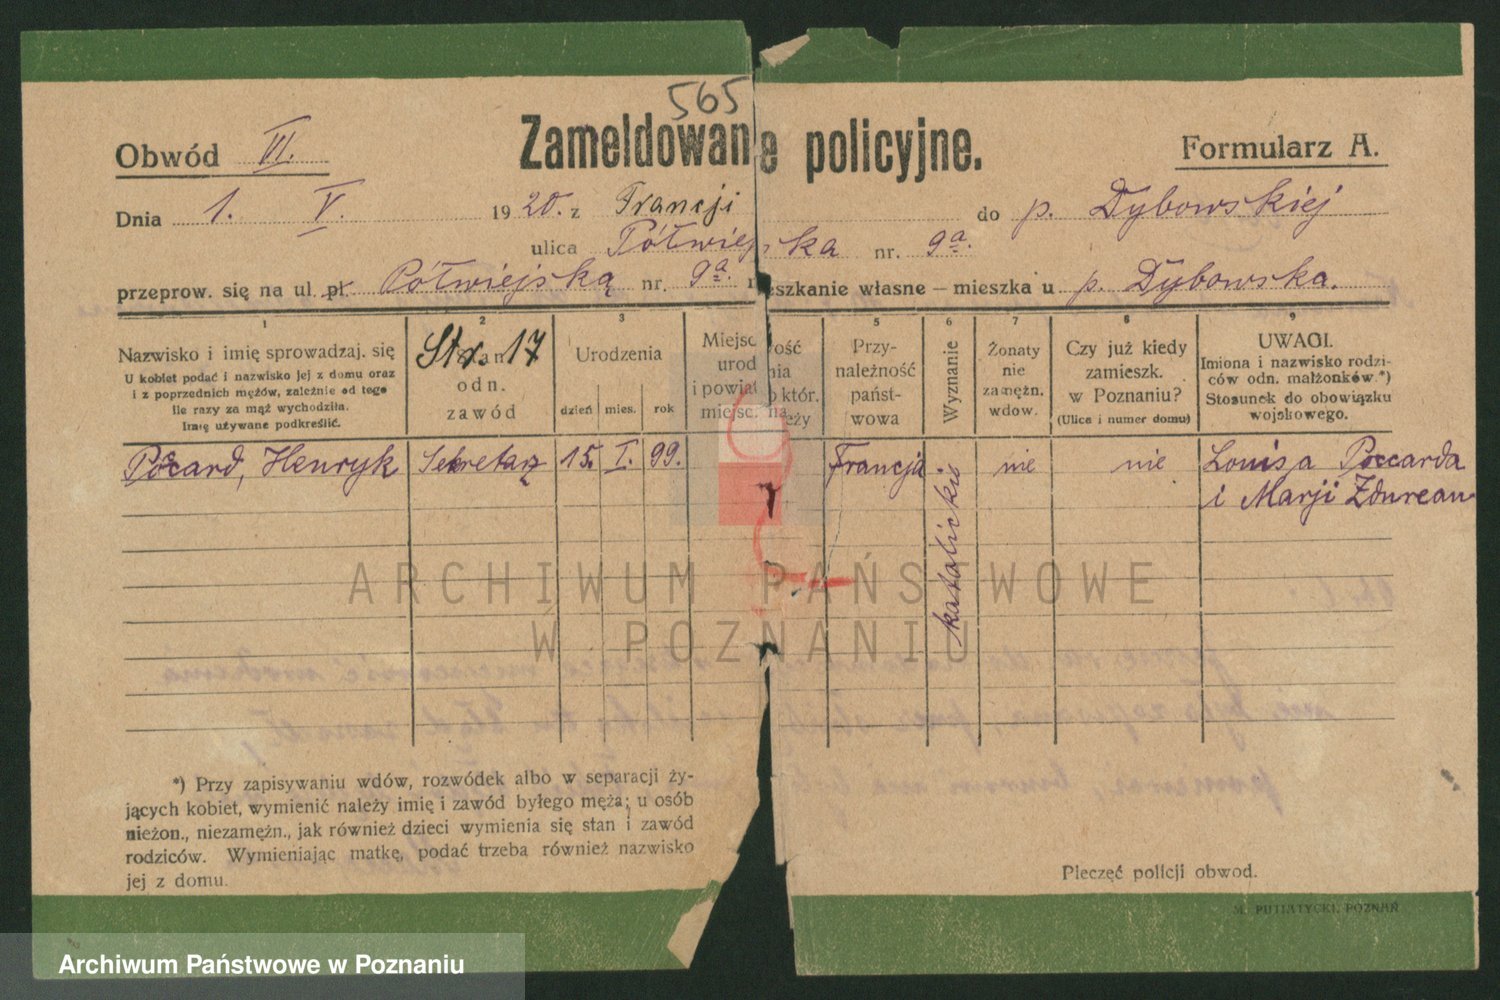 565
Obwód VI. Zameldowanie policyjne. Formularz A.
Dnia 1. V. 1920. z Francji do p. Dybowskiej
ulica Półwiejska nr. 9a.
przeprow. się na ul. pl. Półwiejską nr. 9a. mieszkanie własne – mieszka u p. Dybowska.
1 2 3 5 6 7 8 9
Nazwisko i imię sprowadzaj. się
U kobiet podać i nazwisko jej z domu oraz
i z poprzednich mężów, zależnie od tego
ile razy za mąż wychodziła.
Imię używane podkreślić.
Stan
Str. 17
odn.
zawód
Urodzenia
dzień mies. rok
Miejsc ość
urod nia
i powiat do któr.
miejsc. należy
Przy-
należność
państ-
wowa
Wyznanie
Żonaty
nie
zamężn.
wdow.
Czy już kiedy
zamieszk.
w Poznaniu?
(Ulica i numer domu)
UWAGI.
Imiona i nazwisko rodzi-
ców odn. małżonków.*)
Stosunek do obowiązku
wojskowego.
Pocard, Henryk Sekretarz 15. I. 99. Francja katolickie nie nie Louisa Poccarda
i Marji Zdureau
*) Przy zapisywaniu wdów, rozwódek albo w separacji ży-
jących kobiet, wymienić należy imię i zawód byłego męża; u osób
nieżon., niezamężn., jak również dzieci wymienia się stan i zawód
rodziców. Wymieniając matkę, podać trzeba również nazwisko
jej z domu.
Pieczęć policji obwod.
M. PUTIATYCKI, POZNAŃ
ARCHIWUM PAŃSTWOWE
W POZNANIU
Archiwum Państwowe w Poznaniu